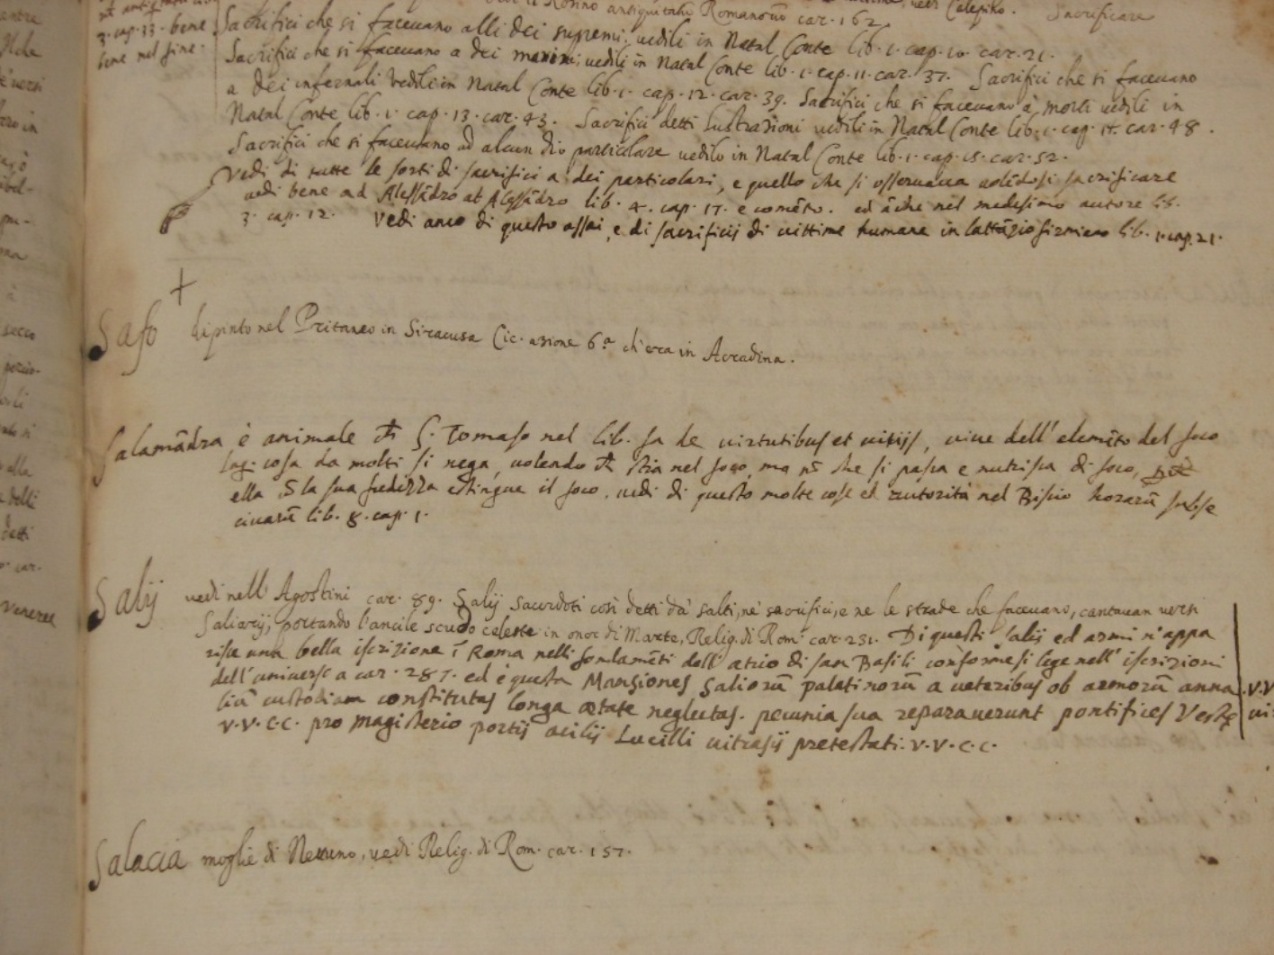 antiquitati Romanorũ car. 162. vedi Calepino. Sacrificare
3. cap. 33. bene
bene nel fine.
Sacrifici che si faceuano alli dei supremi, uedili in Natal Conte lib. 1. cap. 10. car. 21.
Sacrifici che si faceuano a dei marini, uedili in Natal Conte lib. 1. cap. 11. car. 37. Sacrifici che si faceuano
a dei infernali vedili in Natal Conte lib. 1. cap. 12. car. 39. Sacrifici che si faceuano a morti uedili in
Natal Conte lib. 1. cap. 13. car. 43. Sacrifici detti lustrazioni uedili in Natal Conte lib. 1. cap. 14. car. 48.
Sacrifici che si faceuano ad alcun dio particolare uedilo in Natal Conte lib. 1. cap. 15. car. 52.
Vedi di tutte le sorti di sacrifici a dei particolari, e quello che si osseruaua uolẽdosi sacrificare
uedi bene ad Alessãdro at Alessãdro lib. 4. cap. 17. e comẽto. ed ãche nel medesimo autore lib.
3. cap. 12. Vedi anco di questo assai, e di sacrificij di uittime humane in lattãzio firmiano lib. 1. cap. 21.
Safo dipinto nel Pritaneo in Siracusa Cic. azione 6.ª ch'era in Acradina.
Salamãdra è animale ch̃ S. Tomaso nel lib. sa de uirtutibus et uitijs, uiue dell'elemẽto del foco
la q̃. cosa da molti si nega, uolendo ch̃ stia nel foco, ma nõ che si pasca e nutrisca di foco,
ella p̃ la sua fredezza estingue il foco. uedi di questo molte cose et autorità nel Biscio horarũ subse
ciuarũ lib. 8. cap. 1.
Salij vedi nell'Agostini car. 89. Salij Sacerdoti così detti da' salti, ne' sacrifici, e ne le strade che faceuano, cantauan uersi
Saliarij, portando l'ancile scudo celeste in onor di Marte, Relig. di Rom. car. 231. Di questi salij ed armi n'appa
risce una bella iscrizione ĩ Roma nelli fondamẽti dell'atrio di san Basili conforme si lege nell'iscrizioni
dell'uniuerso a car. 287. ed è questa Mansiones Saliorũ palatinorũ a ueteribus ob armorũ anna
liũ custodiam constitutas longa ætate neglectas. pecunia sua reparauerunt pontifices Vestę
V.V.C.C. pro magisterio portij acilij Lucilli uitrasij pretestati. V.V.C.C.
Salacia moglie di Nettuno, uedi Relig. di Rom. car. 157.